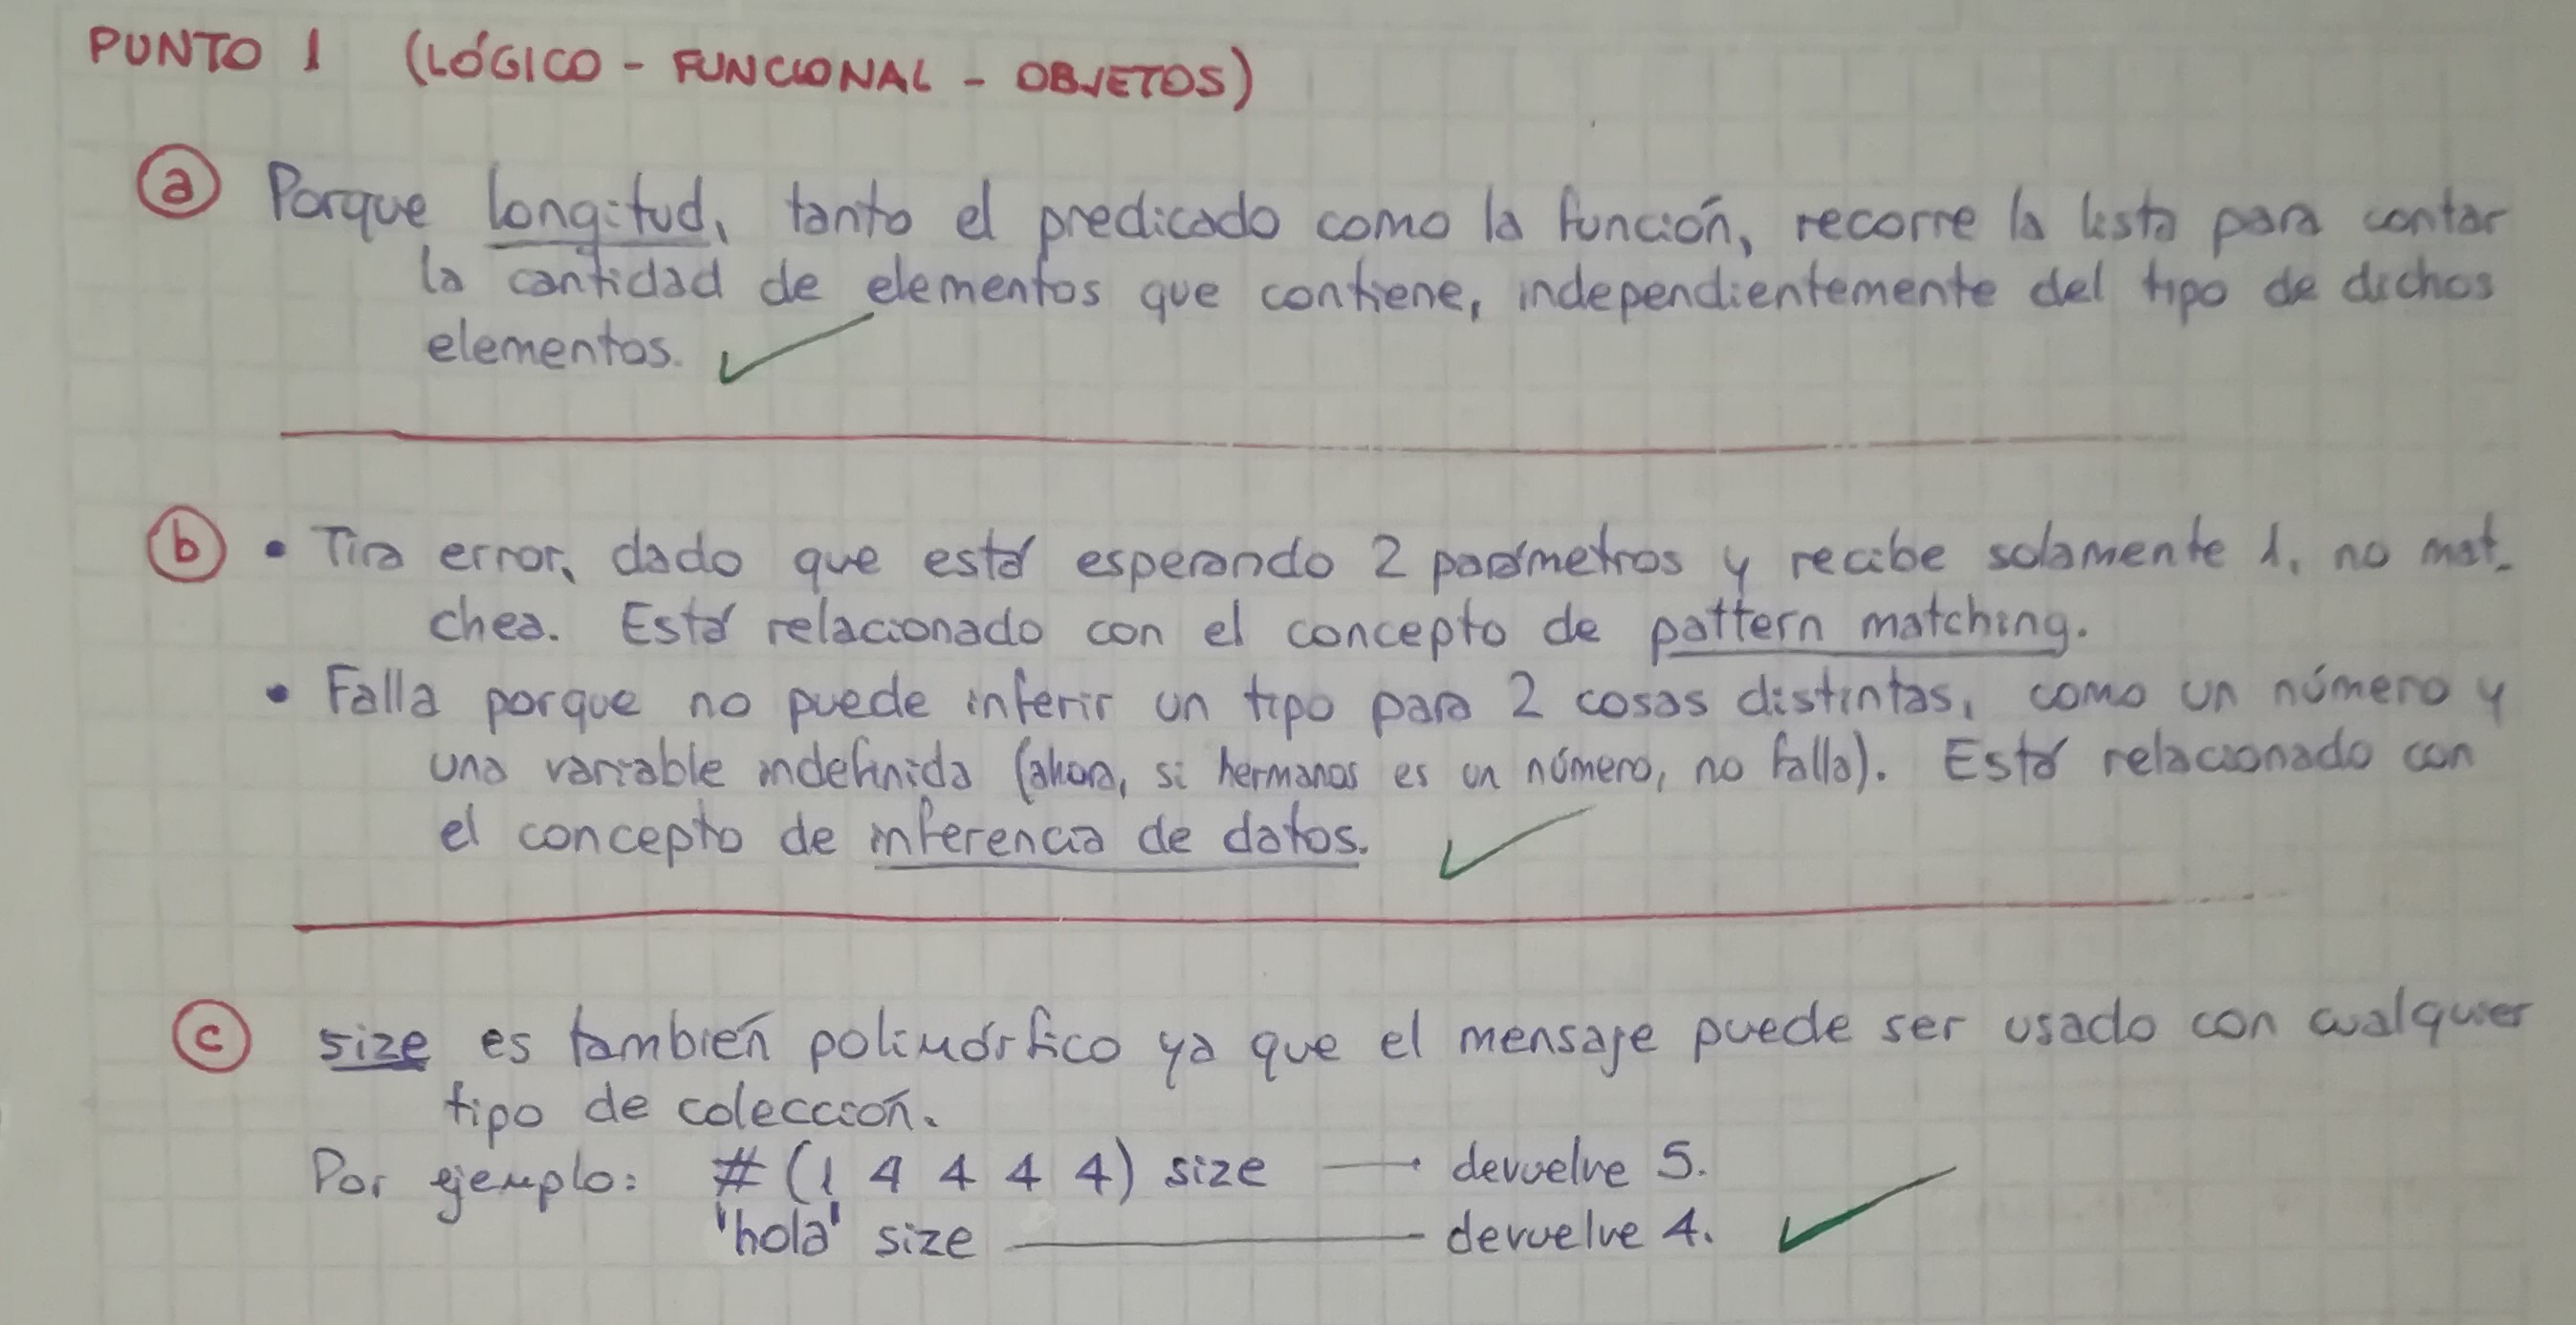 PUNTO 1 (LÓGICO - FUNCIONAL - OBJETOS)
a Porque longitud, tanto el predicado como la función, recorre la lista para contar
la cantidad de elementos que contiene, independientemente del tipo de dichos
elementos.
b • Tira error, dado que está esperando 2 parámetros y recibe solamente 1, no mat-
chea. Está relacionado con el concepto de pattern matching.
• Falla porque no puede inferir un tipo para 2 cosas distintas, como un número y
una variable indefinida (ahora, si hermanos es un número, no falla). Está relacionado con
el concepto de inferencia de datos.
c size es también polimórfico ya que el mensaje puede ser usado con cualquier
tipo de colección.
Por ejemplo: #(1 4 4 4 4) size → devuelve 5.
'hola' size — devuelve 4.